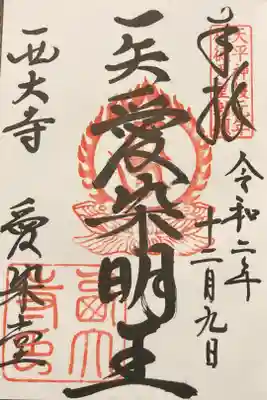 奉拝
天平神護元年
令和二年
十二月九日
愛染明王
西大寺
愛染堂